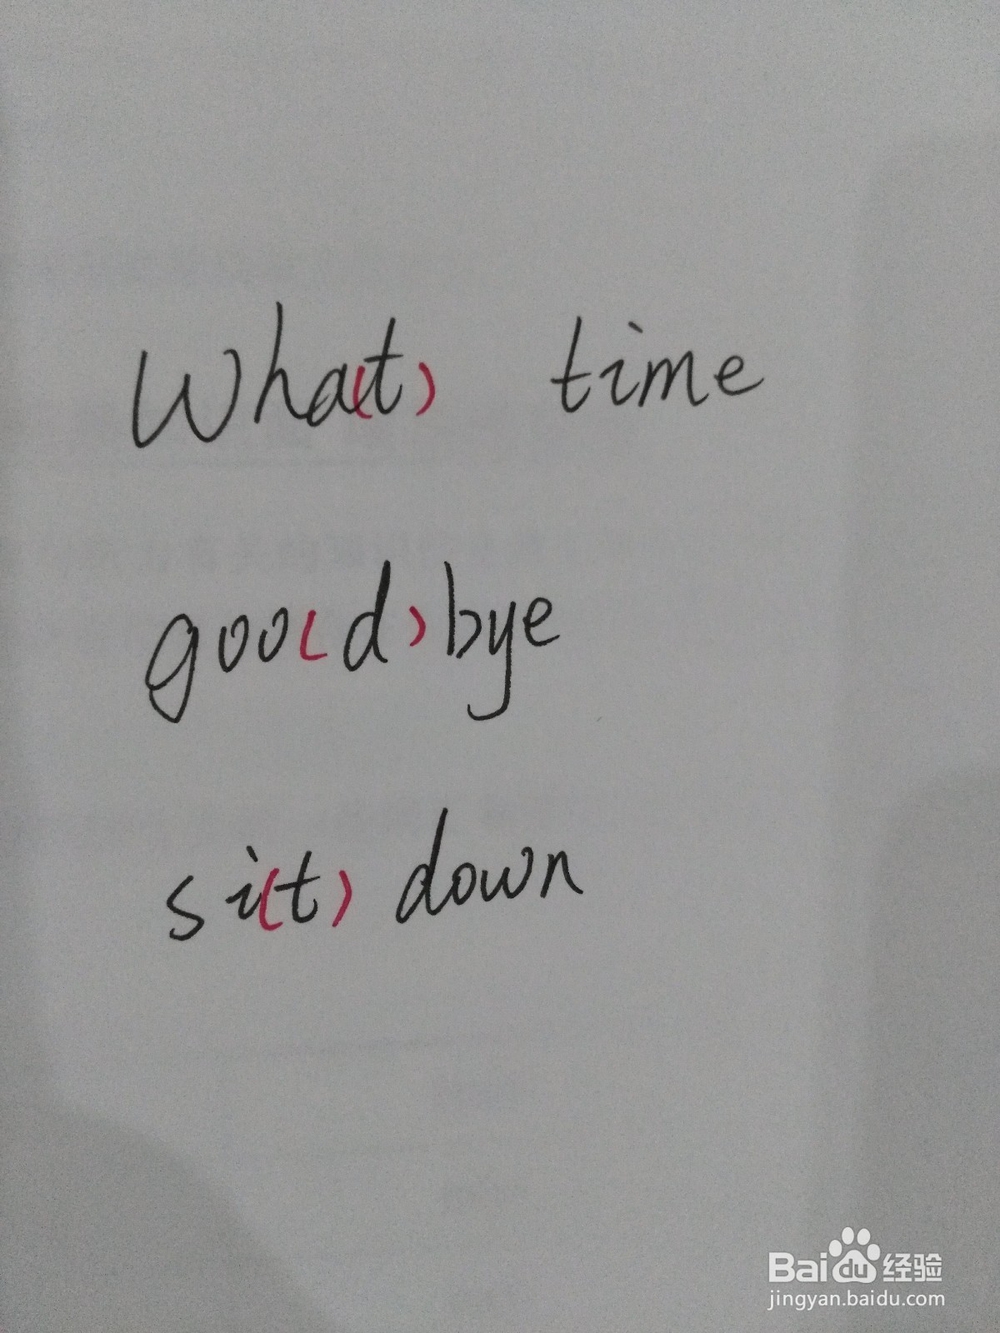 Wha(t) time
goo(d)bye
si(t) down
Baidu经验
jingyan.baidu.com